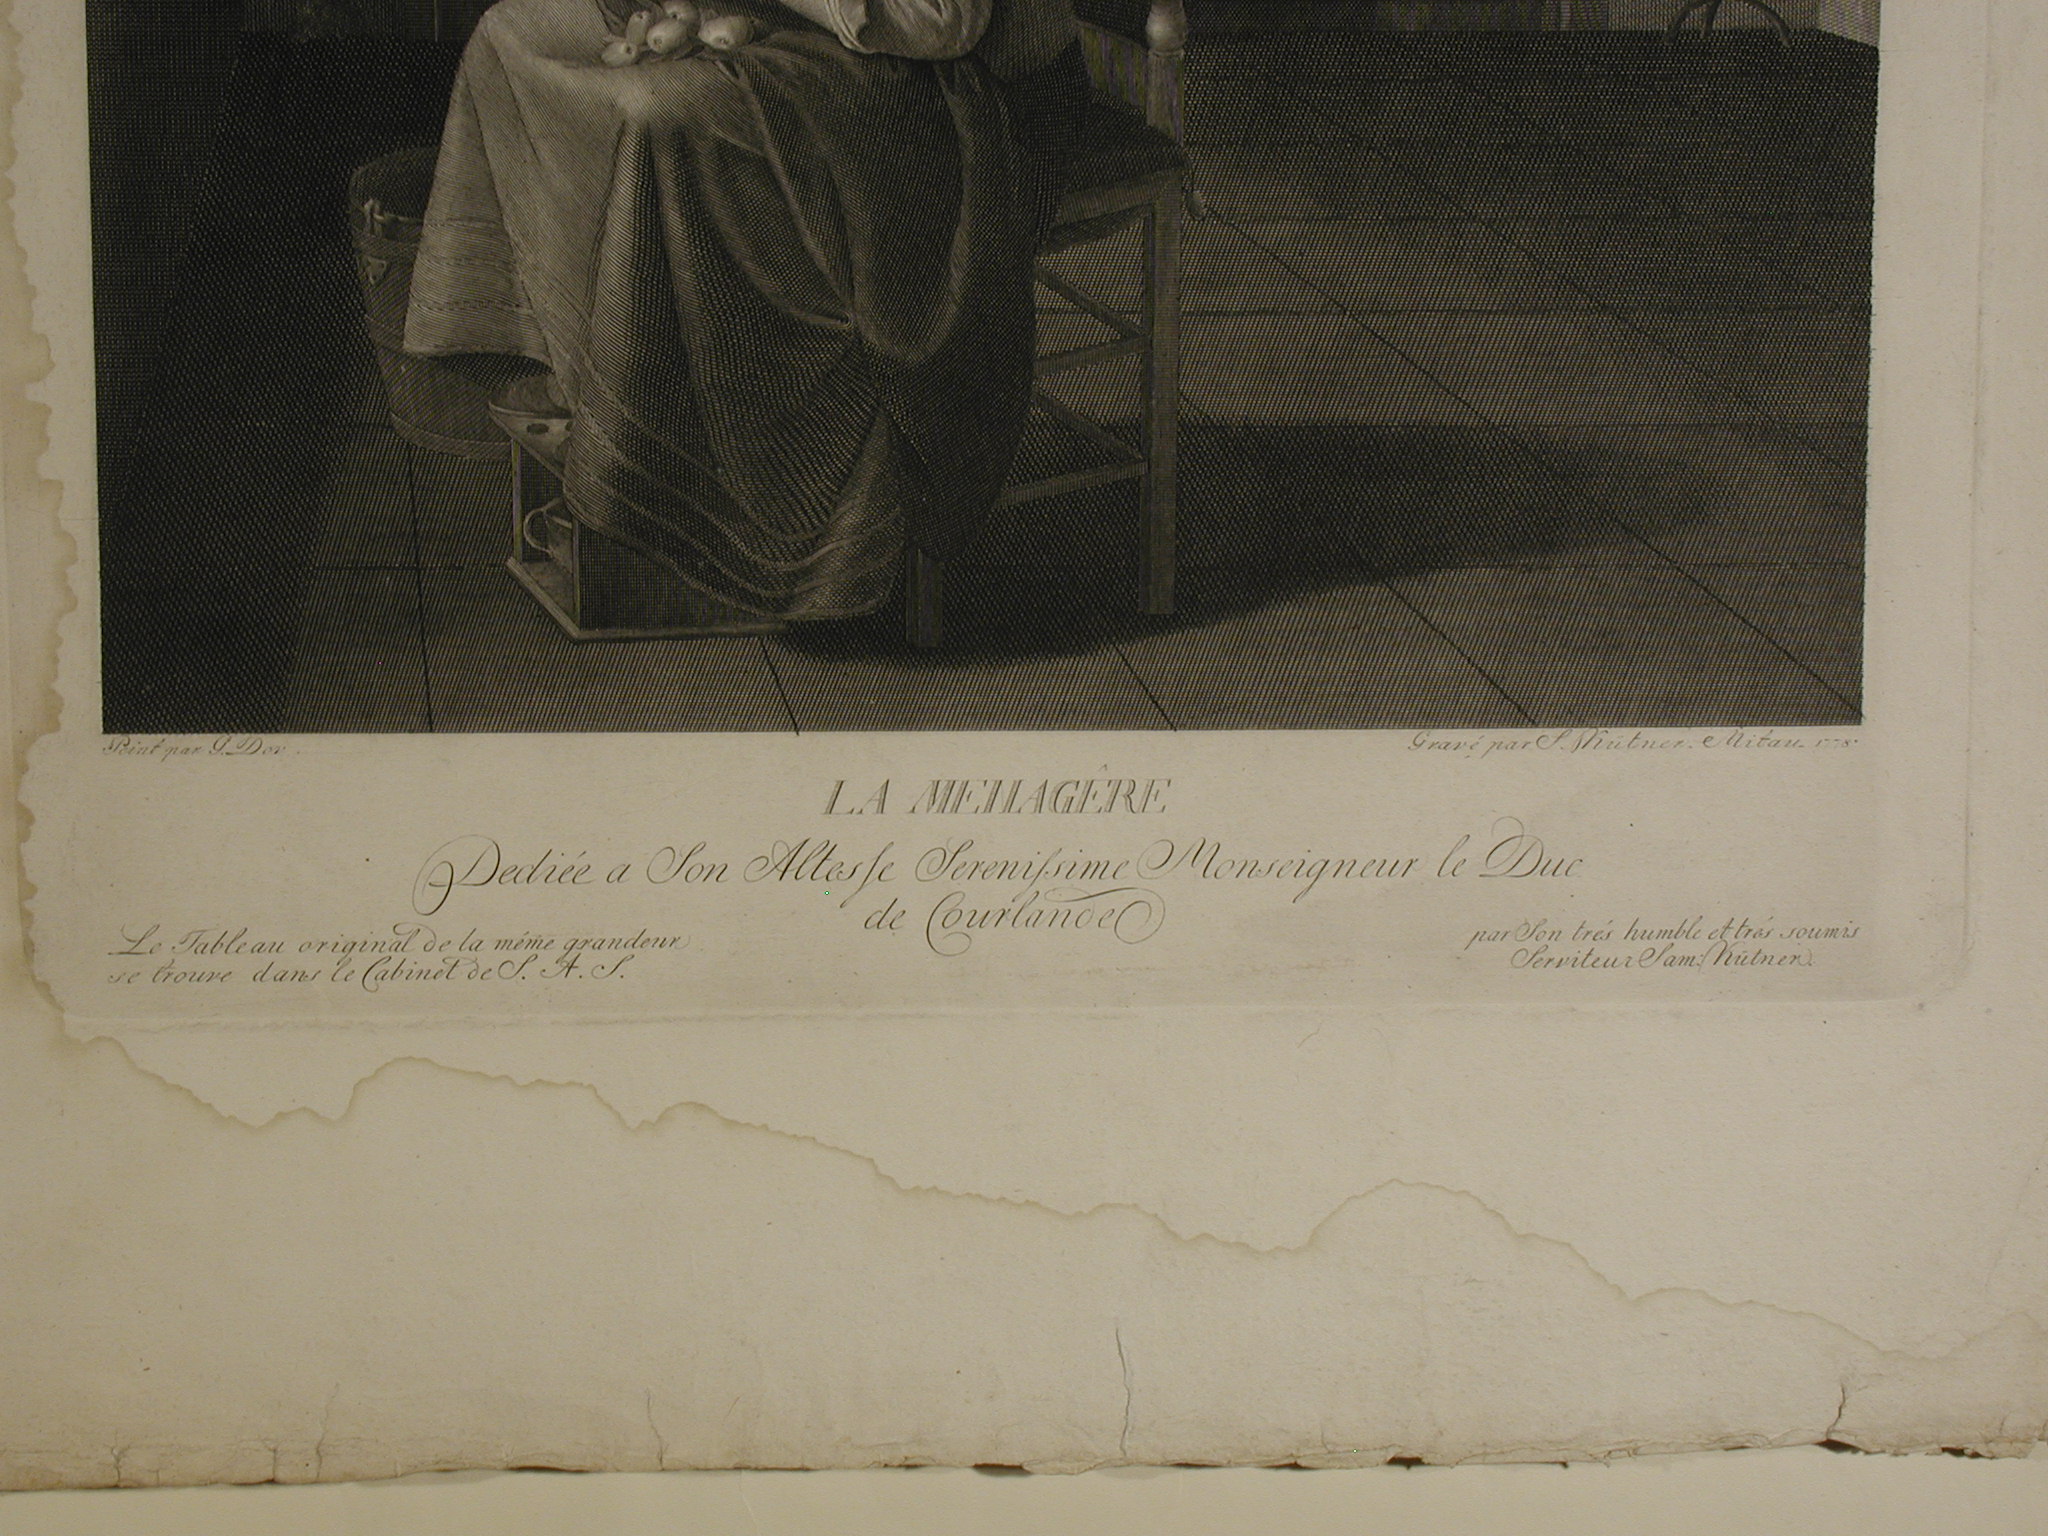 Peint par G. Dov.
Gravé par S. Kütner. Mitau. 1778.
LA MENAGÊRE
Dediée a Son Altesse Serenissime Monseigneur le Duc
de Courlande
Le Tableau original de la méme grandeur
se trouve dans le Cabinet de S. A. S.
par Son trés humble et trés soumis
Serviteur Sam: Kütner.